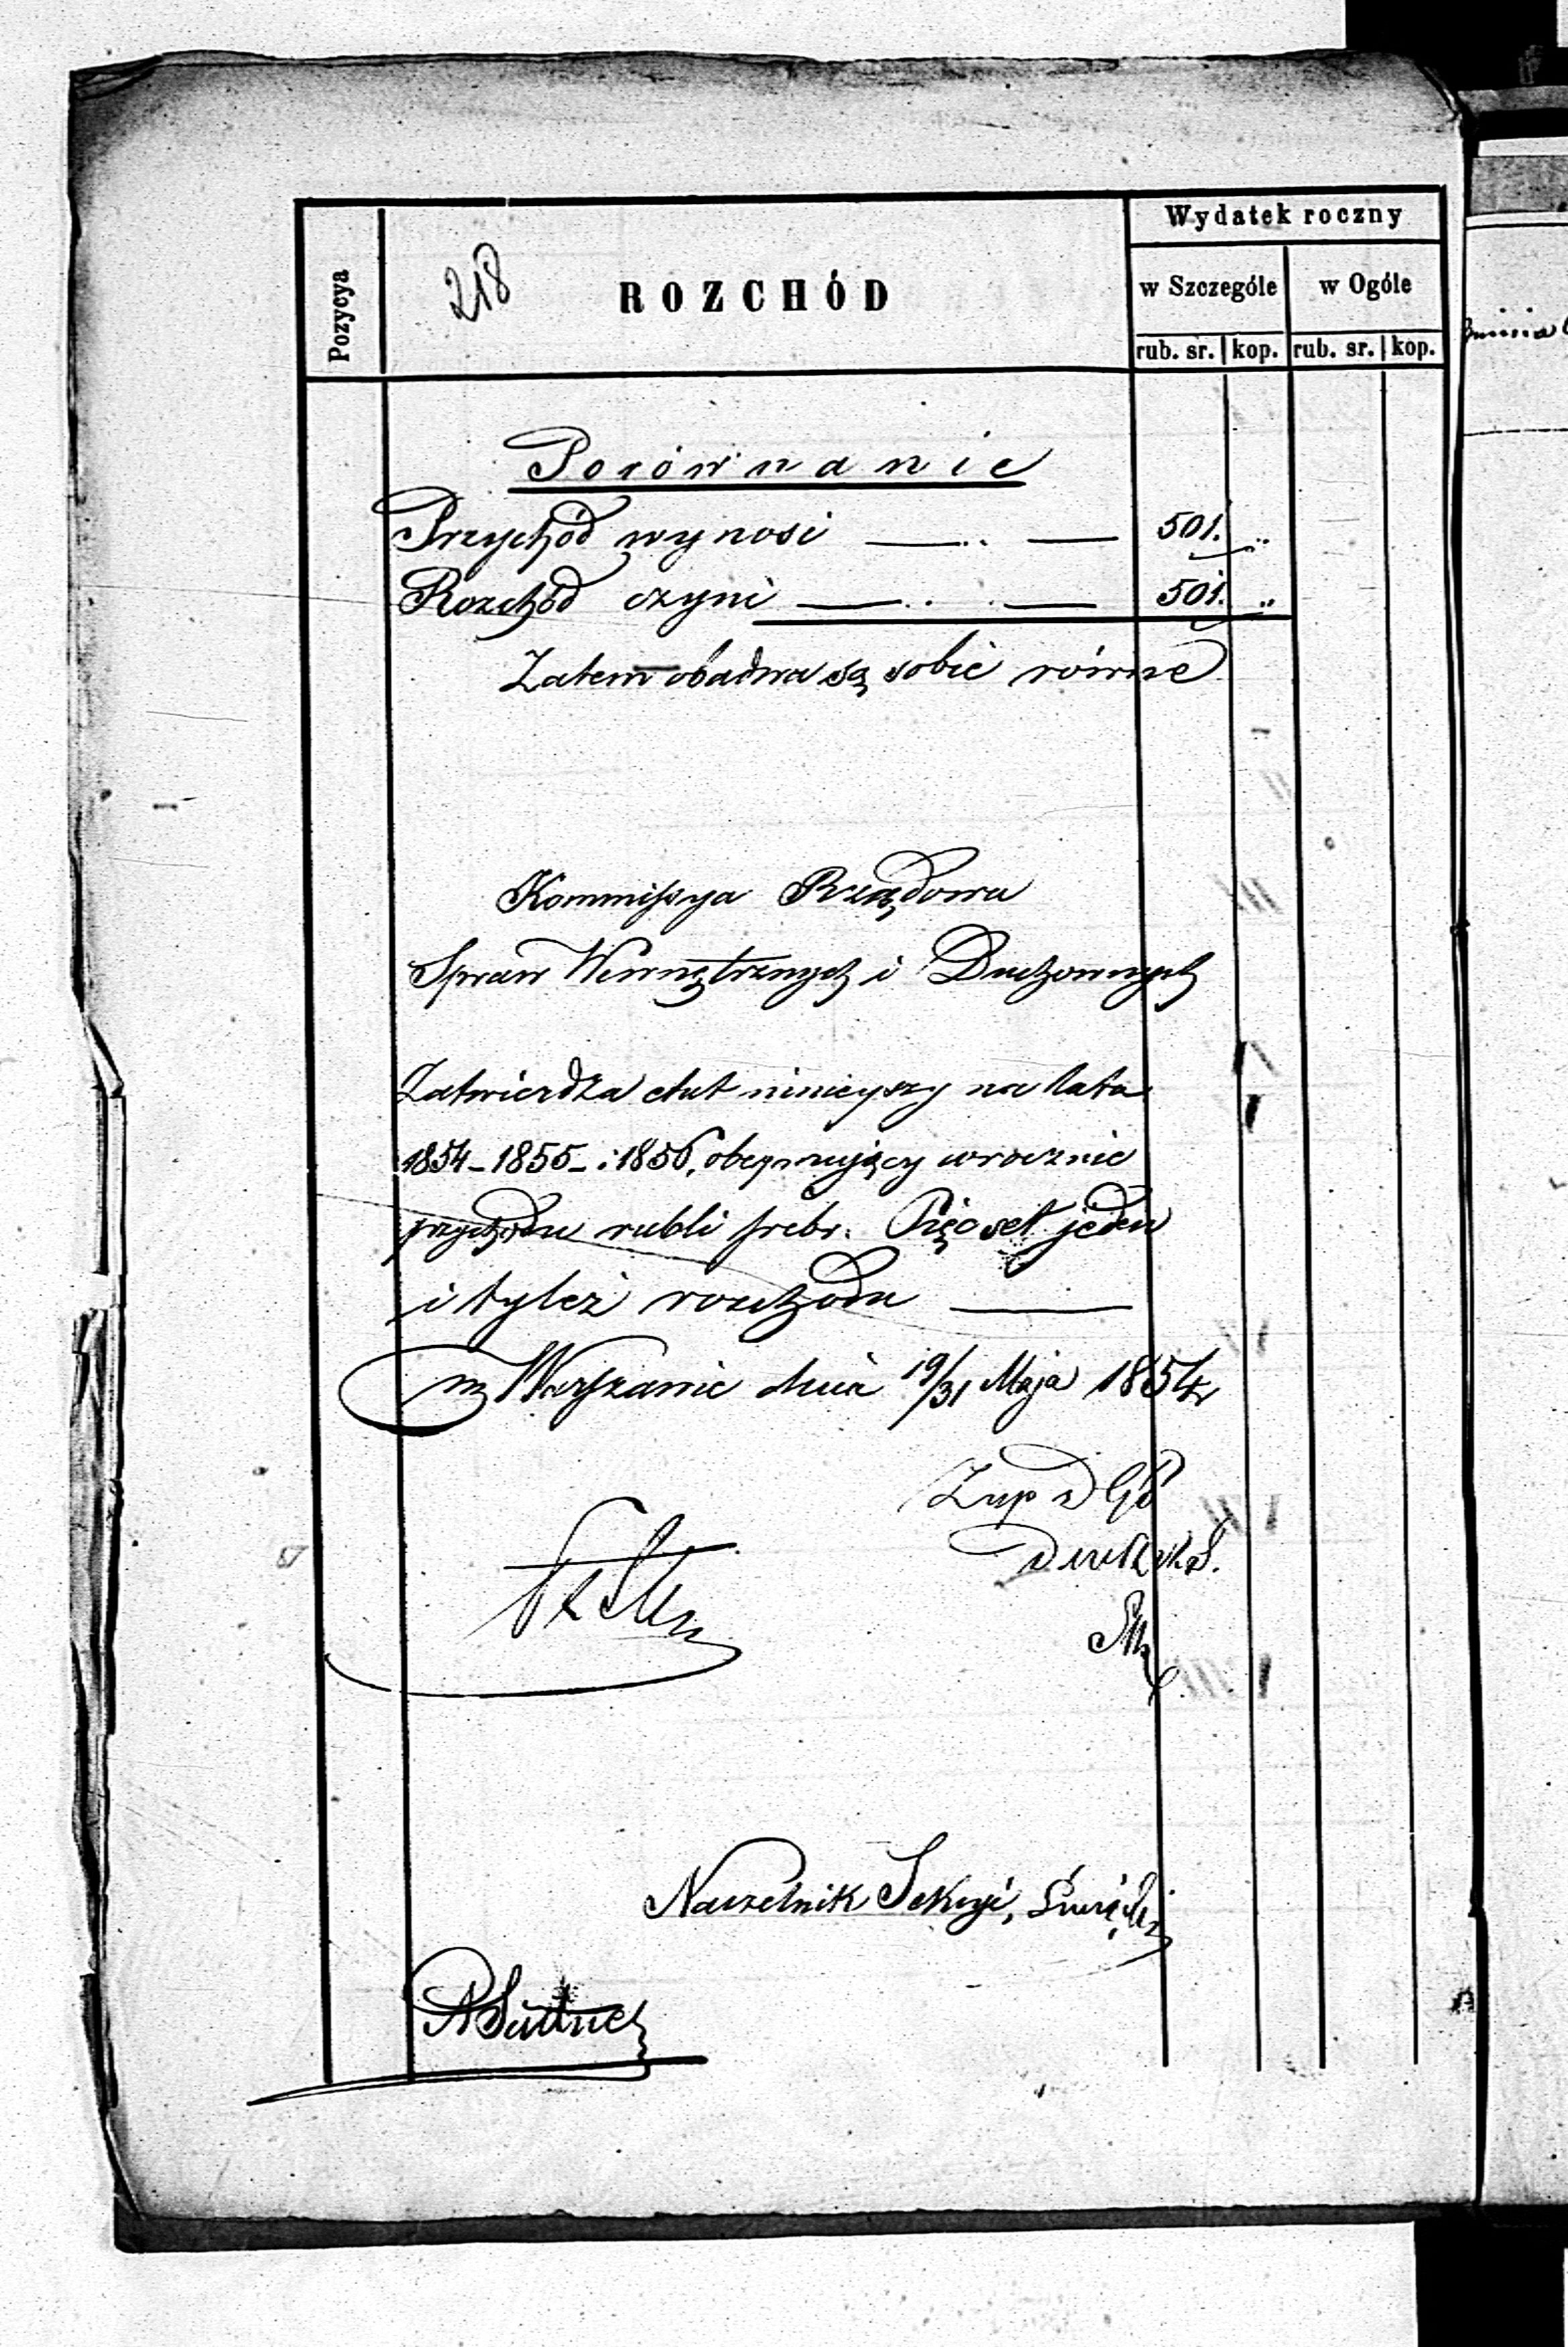 Wydatek roczny
Pozycya
218
ROZCHÓD
w Szczególe
w Ogóle
rub. sr. kop. rub. sr. kop.
Porównanie
Przychód wynosi 501. ..
Rozchód czyni 501. ..
Zatem obadwa są sobie równe
Kommissya Rządowa
Spraw Wewnętrznych i Duchownych
Zatwierdza etat ninieyszy na lata
1854 - 1855 - i 1856, obeymujący w rocznie
przychodu rubli srebr. Pięcset jeden
i tyleż rozchodu
w Warszawie dnia 19/31 Maja 1854 r
Naczelnik Sekcyi,